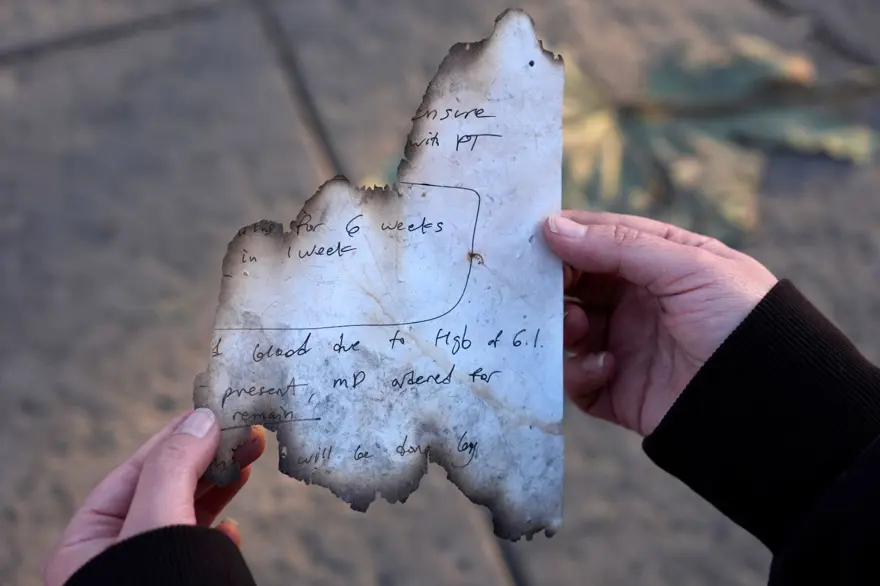 ensure
with PT
for 6 weeks
in 1 week
blood due to Hgb of 6.1.
present, MD ordered for
remain
will be done by